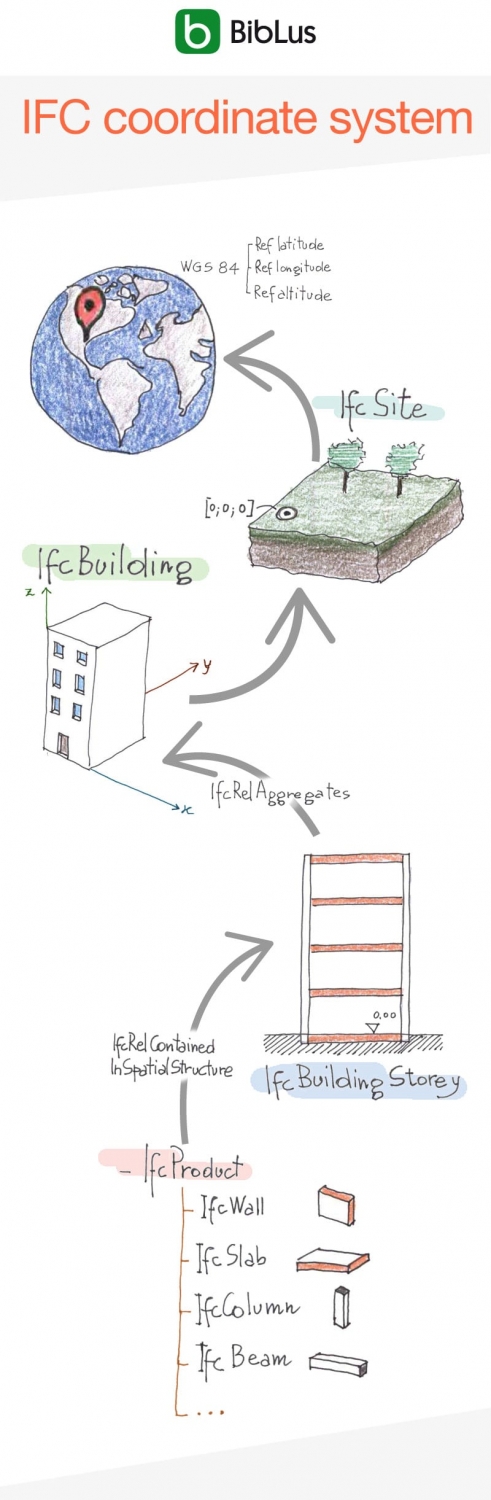 b BibLus
IFC coordinate system
Ref latitude
WGS 84 Ref longitude
Ref altitude
Ifc Site
[0;0;0]
IfcBuilding
z
y
x
IfcRelAggregates
0.00
IfcRelContained
InSpatialStructure
IfcBuildingStorey
- IfcProduct
IfcWall
IfcSlab
IfcColumn
Ifc Beam
...